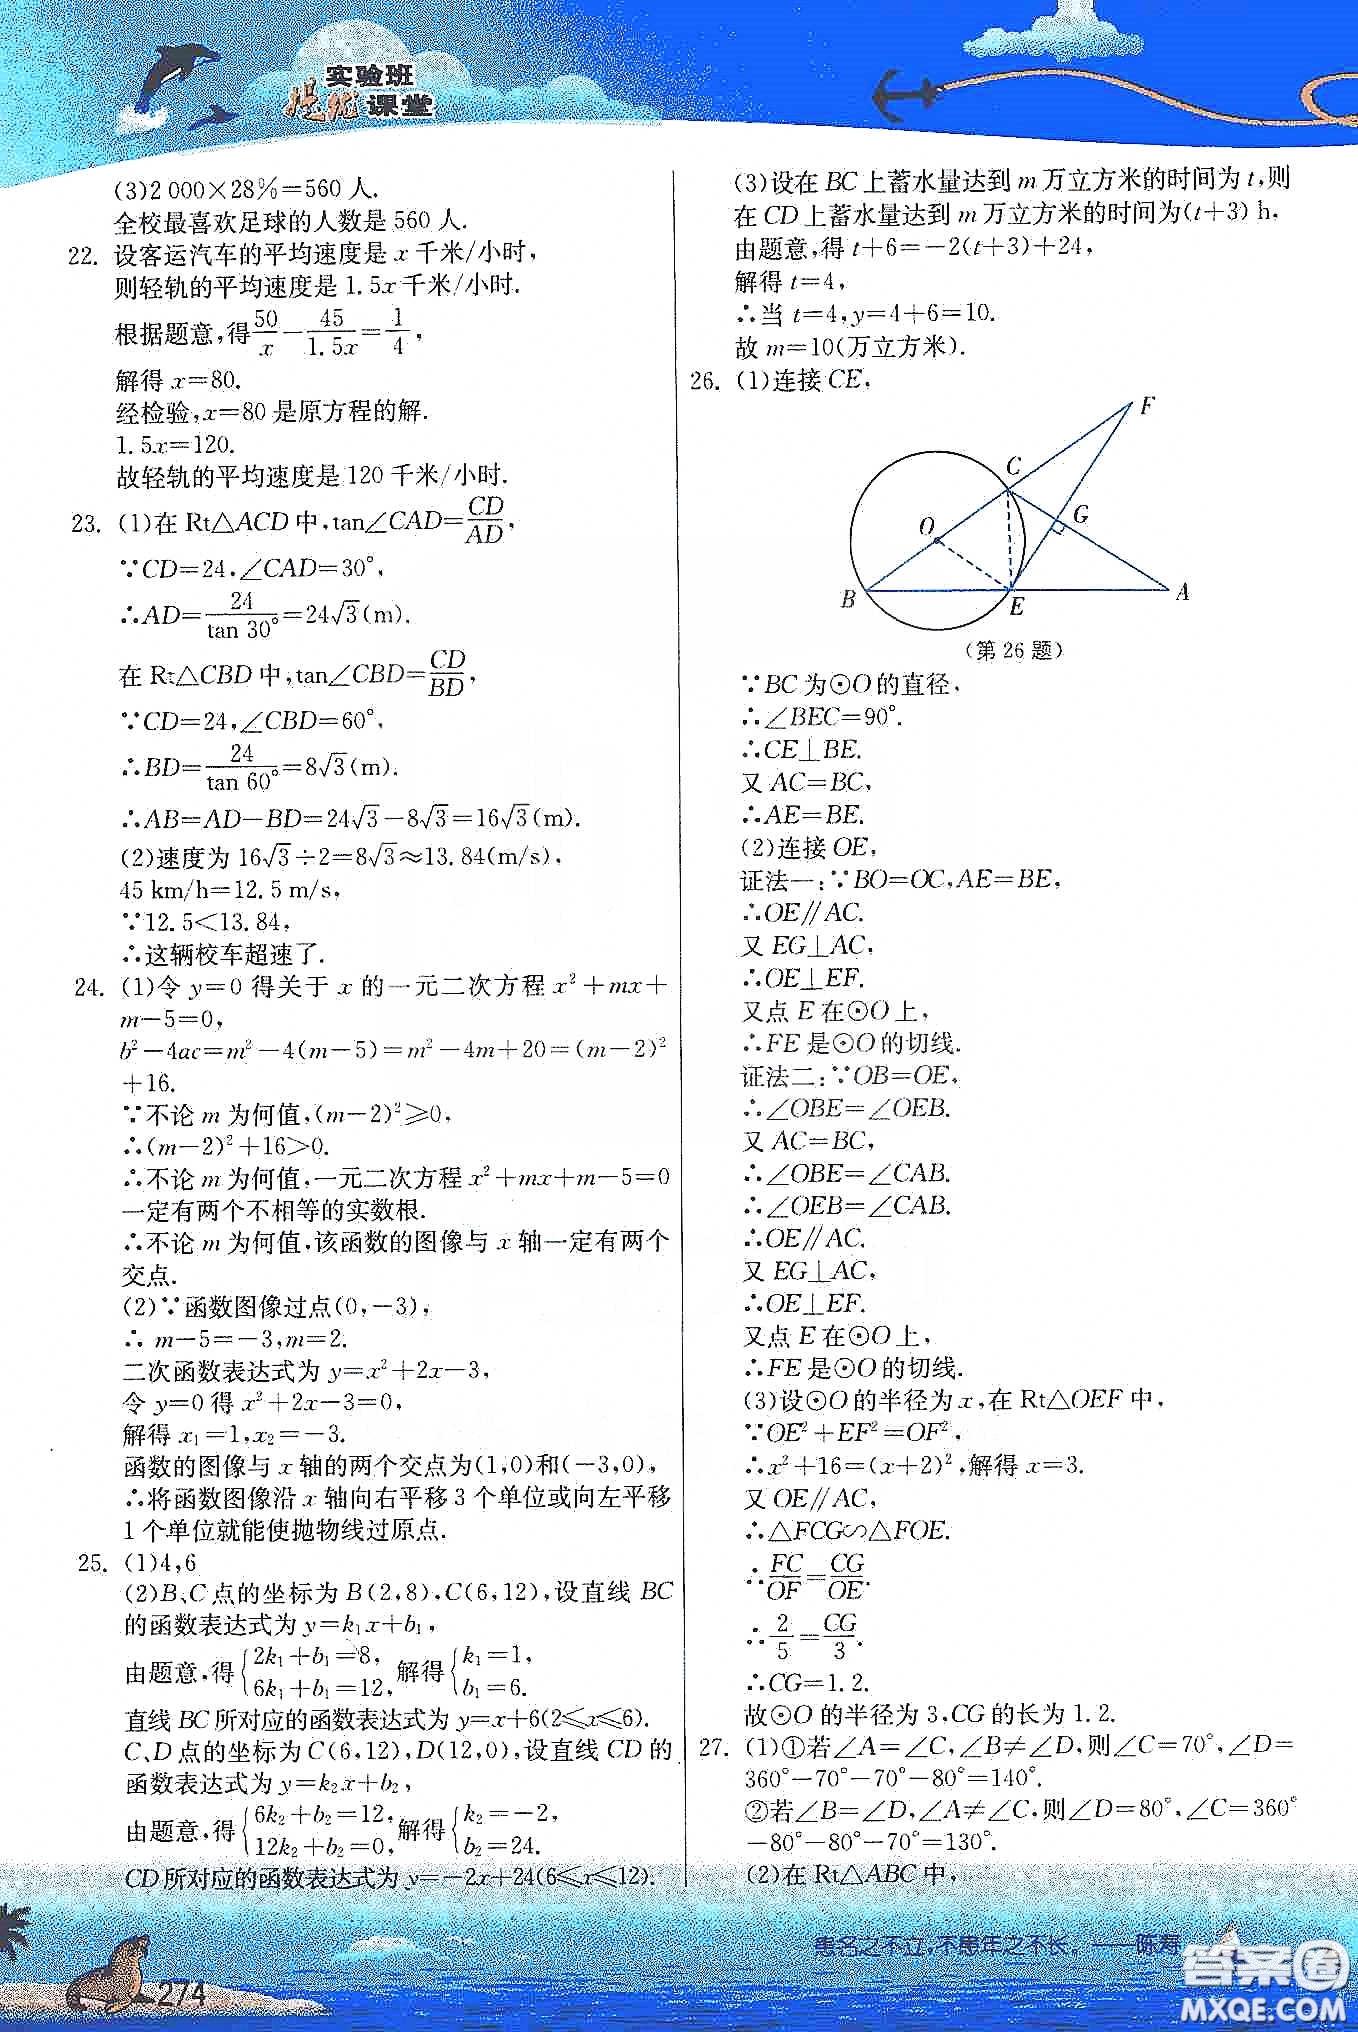 实验班
提优课堂
(3)2 000×28%=560 人.
全校最喜欢足球的人数是 560 人.
22. 设客运汽车的平均速度是 x 千米/小时,
则轻轨的平均速度是 1.5x 千米/小时.
根据题意,得50/x－45/1.5x=1/4,
解得 x=80.
经检验,x=80 是原方程的解.
1.5x=120.
故轻轨的平均速度是 120 千米/小时.
23. (1)在 Rt△ACD 中,tan∠CAD=CD/AD,
∵CD=24,∠CAD=30°,
∴AD=24/tan 30°=24√3(m).
在 Rt△CBD 中,tan∠CBD=CD/BD,
∵CD=24,∠CBD=60°,
∴BD=24/tan 60°=8√3(m).
∴AB=AD－BD=24√3－8√3=16√3(m).
(2)速度为 16√3÷2=8√3≈13.84(m/s),
45 km/h=12.5 m/s,
∵12.5<13.84,
∴这辆校车超速了.
24. (1)令 y=0 得关于 x 的一元二次方程 x²+mx+
m－5=0,
b²－4ac=m²－4(m－5)=m²－4m+20=(m－2)²
+16.
∵不论 m 为何值,(m－2)²≥0,
∴(m－2)²+16>0.
∴不论 m 为何值,一元二次方程 x²+mx+m－5=0
一定有两个不相等的实数根.
∴不论 m 为何值,该函数的图像与 x 轴一定有两个
交点.
(2)∵函数图像过点(0,－3),
∴ m－5=－3,m=2.
二次函数表达式为 y=x²+2x－3,
令 y=0 得 x²+2x－3=0,
解得 x₁=1,x₂=－3.
函数的图像与 x 轴的两个交点为(1,0)和(－3,0),
∴将函数图像沿 x 轴向右平移 3 个单位或向左平移
1 个单位就能使抛物线过原点.
25. (1)4,6
(2)B、C 点的坐标为 B(2,8),C(6,12),设直线 BC
的函数表达式为 y=k₁x+b₁,
由题意,得{2k₁+b₁=8, 6k₁+b₁=12, 解得{k₁=1, b₁=6.
直线 BC 所对应的函数表达式为 y=x+6(2≤x≤6).
C、D 点的坐标为 C(6,12),D(12,0),设直线 CD 的
函数表达式为 y=k₂x+b₂,
由题意,得{6k₂+b₂=12, 12k₂+b₂=0, 解得{k₂=－2, b₂=24.
CD 所对应的函数表达式为 y=－2x+24(6≤x≤12).
(3)设在 BC 上蓄水量达到 m 万立方米的时间为 t,则
在 CD 上蓄水量达到 m 万立方米的时间为(t+3) h,
由题意,得 t+6=－2(t+3)+24,
解得 t=4,
∴当 t=4,y=4+6=10.
故 m=10(万立方米).
26. (1)连接 CE,
F
C
O
G
B
E
A
(第 26 题)
∵BC 为⊙O 的直径,
∴∠BEC=90°.
∴CE⊥BE.
又 AC=BC,
∴AE=BE.
(2)连接 OE,
证法一:∵BO=OC,AE=BE,
∴OE∥AC.
又 EG⊥AC,
∴OE⊥EF.
又点 E 在⊙O 上,
∴FE 是⊙O 的切线.
证法二:∵OB=OE,
∴∠OBE=∠OEB.
又 AC=BC,
∴∠OBE=∠CAB.
∴∠OEB=∠CAB.
∴OE∥AC.
又 EG⊥AC,
∴OE⊥EF.
又点 E 在⊙O 上,
∴FE 是⊙O 的切线.
(3)设⊙O 的半径为 x,在 Rt△OEF 中,
∵OE²+EF²=OF²,
∴x²+16=(x+2)²,解得 x=3.
又 OE∥AC,
∴△FCG∽△FOE.
∴FC/OF=CG/OE.
∴2/5=CG/3.
∴CG=1.2.
故⊙O 的半径为 3,CG 的长为 1.2.
27. (1)①若∠A=∠C,∠B≠∠D,则∠C=70°,∠D=
360°－70°－70°－80°=140°.
②若∠B=∠D,∠A≠∠C,则∠D=80°,∠C=360°
－80°－80°－70°=130°.
(2)在 Rt△ABC 中,
患名之不立,不患年之不长。——陈寿
274
答案圈
MXQE.COM